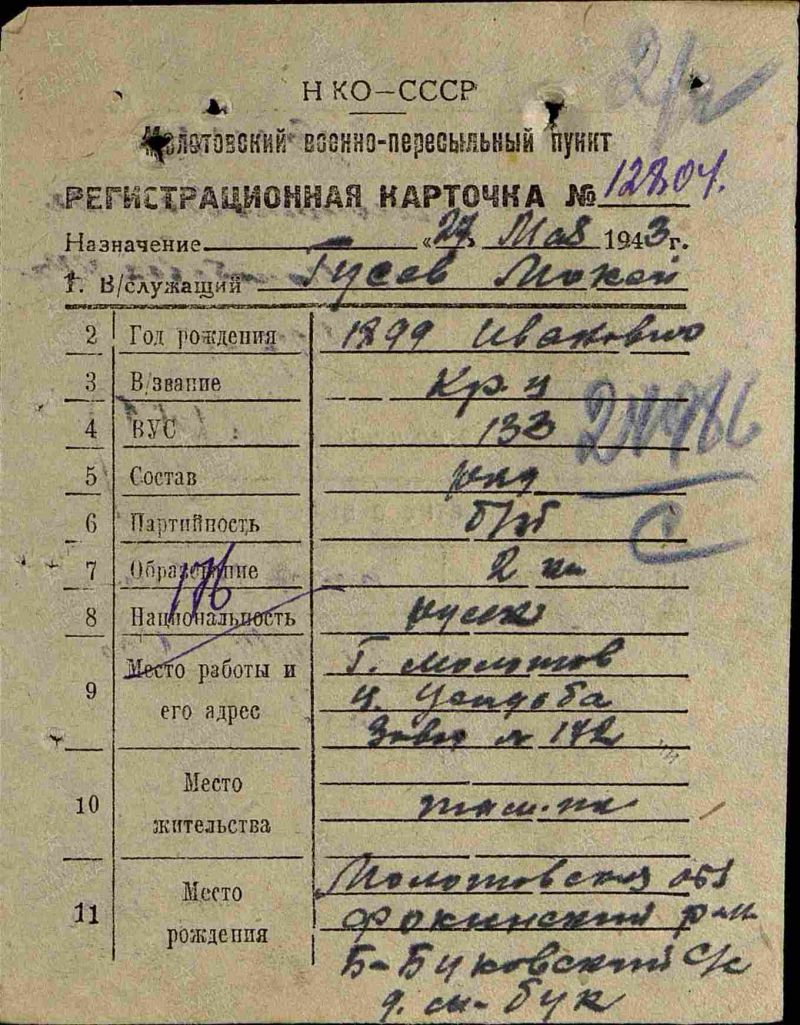 НКО—СССР
Молотовский военно-пересыльный пункт
РЕГИСТРАЦИОННАЯ КАРТОЧКА № 12804.
Назначение «27» Мая 1943 г.
1. В/служащий Гусев Мокей
2 Год рождения 1899 Иванович
3 В/звание Кр-ц
4 ВУС 133
5 Состав ряд
6 Партийность б/п
7 Образование 2 кл
8 Национальность русск
176
9 Место работы и его адрес Г. Молотов
ц. Усадьба
Завод № 172
10 Место жительства там-же
11 Место рождения Молотовская обл
Фокинский р-н
Б-Буковский с/с
д. м-бук
С